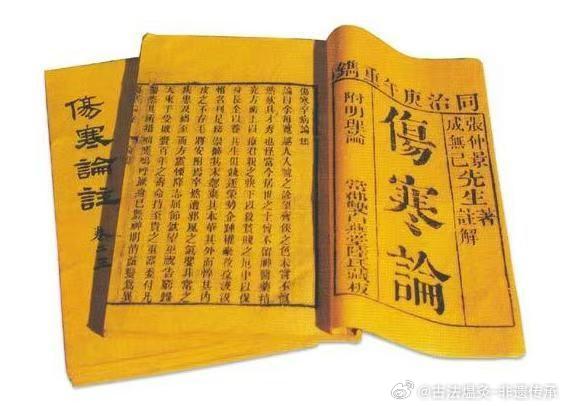 同治庚午重鐫
張仲景先生著
成無己先生註解
傷寒論
附明理論
燕堂陸氏藏板
傷寒卒病論
論曰余每覽越人入虢之診望齊侯之色未嘗不慨
然歎其才秀也怪當今居世之士曾不留神醫藥精
究方術上以療君親之疾下以救貧賤之厄中以保
身長全以養其生但競逐榮勢企踵權豪孜孜汲汲
惟名利是務崇飾其末忽棄其本華其外而悴其內
皮之不存毛將安附焉卒然遭邪風之氣嬰非常之
疾患及禍至而方震慄降志屈節欽望巫祝告窮歸
天束手受敗賚百年之壽命持至貴之重器委付凡
醫恣其所措咄嗟嗚呼厥身已斃神明消滅變為異
傷寒論註
卷之三
@古法温灸-非遗传承